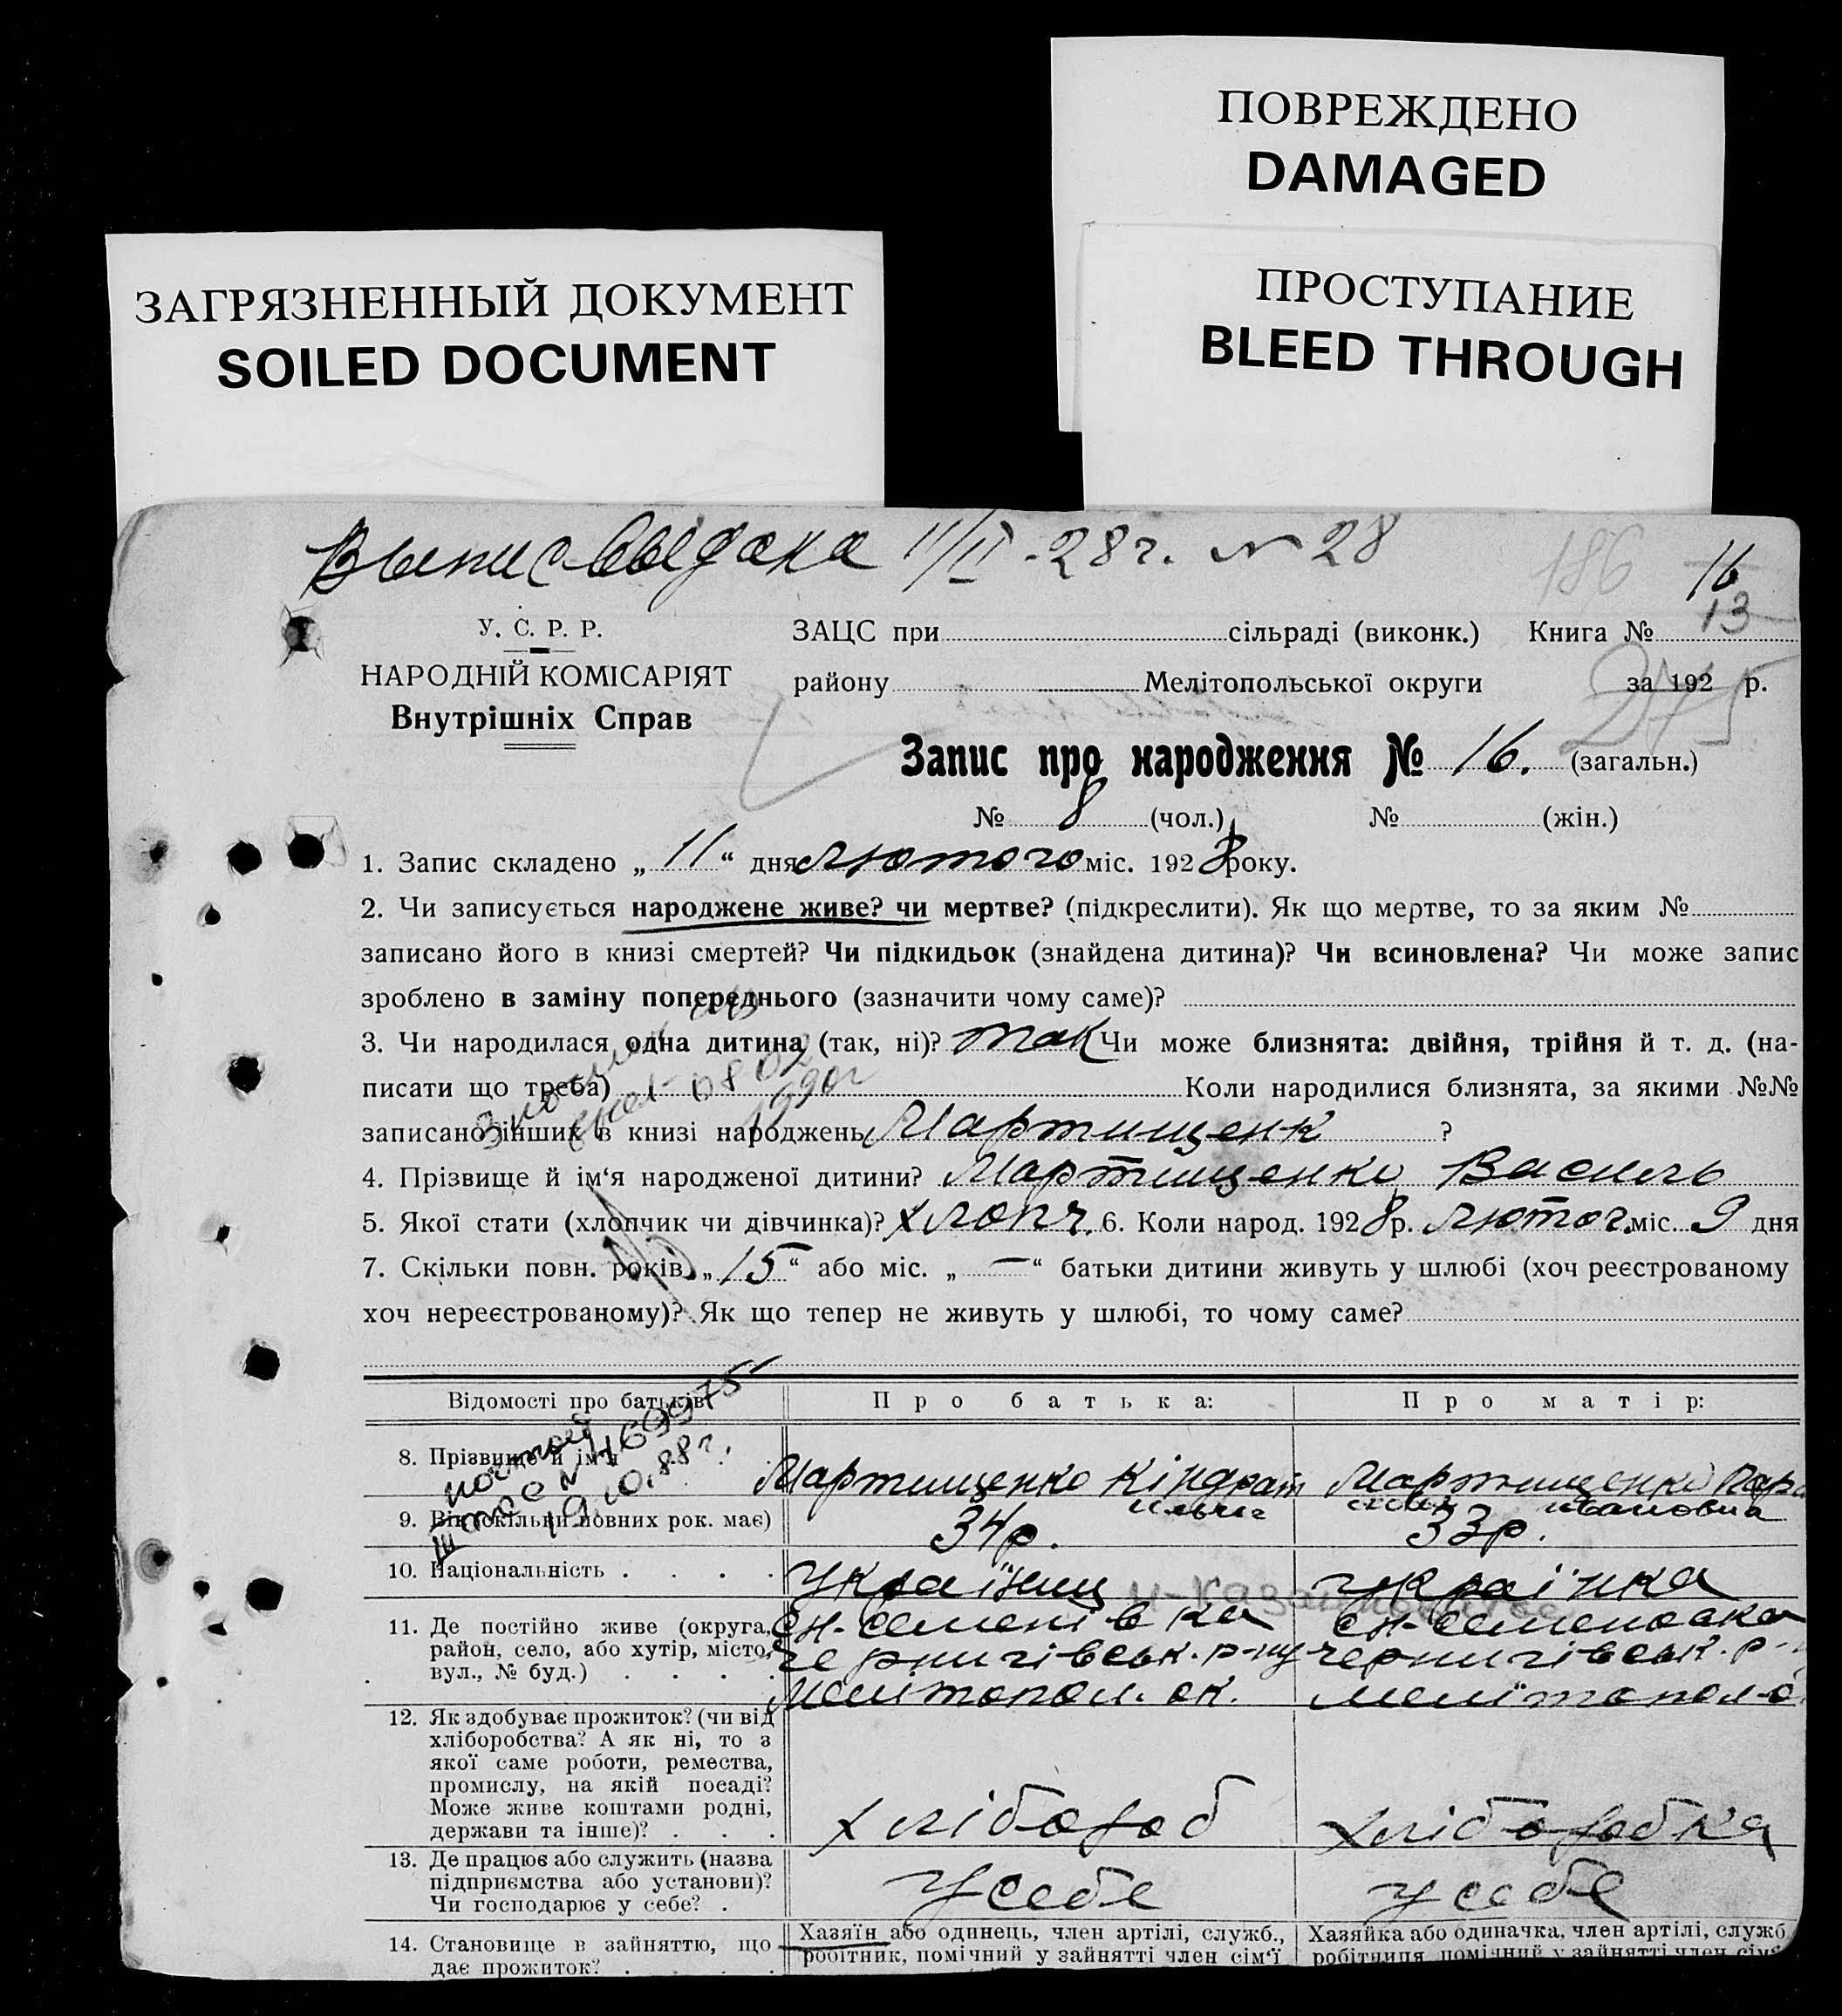 ПОВРЕЖДЕНО
DAMAGED
ЗАГРЯЗНЕННЫЙ ДОКУМЕНТ
SOILED DOCUMENT
ПРОСТУПАНИЕ
BLEED THROUGH
11/II-28г. № 28
186 16
13
У. С. Р. Р.
НАРОДНІЙ КОМІСАРІЯТ
Внутрішніх Справ
ЗАЦС при сільраді (виконк.) Книга №
району Мелітопольської округи за 192 р.
275
Запис про народження № 16. (загальн.)
№ 8 (чол.) № (жін.)
1. Запис складено „ 11 “ дня лютого міс. 1928 року.
2. Чи записується народжене живе? чи мертве? (підкреслити). Як що мертве, то за яким №
записано його в книзі смертей? Чи підкидьок (знайдена дитина)? Чи всиновлена? Чи може запис
зроблено в заміну попереднього (зазначити чому саме)?
3. Чи народилася одна дитина (так, ні)? так Чи може близнята: двійня, трійня й т. д. (на-
писати що треба) Коли народилися близнята, за якими №№
записано інших в книзі народжень Мартищенк ?
4. Прізвище й ім‘я народженої дитини? Мартищенко Василь
5. Якої статі (хлопчик чи дівчинка)? хлопч. 6. Коли народ. 1928 р. лютог. міс. 9 дня
7. Скільки повн. років „ 15 “ або міс. „ — “ батьки дитини живуть у шлюбі (хоч реєстрованому
хоч нереєстрованому)? Як що тепер не живуть у шлюбі, то чому саме?
Відомості про батьків Про батька: Про матір:
8. Прізвище й ім‘я Мартищенко Кіндрат Мартищенко Пара
9. Вік (скільки повних рок. має) 34р. 33р.
івановна
19.10.88г.
10. Національність . . . . українец українка
11. Де постійно живе (округа,
район, село, або хутір, місто,
вул., № буд.) . . . .
Ен-Семенівка
Чернигівськ. р-ну
Мелітопол. ок.
Ен-Семеновка
Чернигівськ. р-
Мелітопол-о
12. Як здобуває прожиток? (чи від
хліборобства? А як ні, то з
якої саме роботи, ремества,
промислу, на якій посаді?
Може живе коштами родні,
держави та інше)? . . .
хлібороб хліборобка
13. Де працює або служить (назва
підприємства або установи)?
Чи господарює у себе? .
у себе у себе
14. Становище в зайняттю, що
дає прожиток? . . . .
Хазяїн або одинець, член артілі, служб.,
робітник, помічний у зайнятті член сім‘ї
Хазяйка або одиначка, член артілі, служб
робітниця, помічний у зайнятті член сім‘